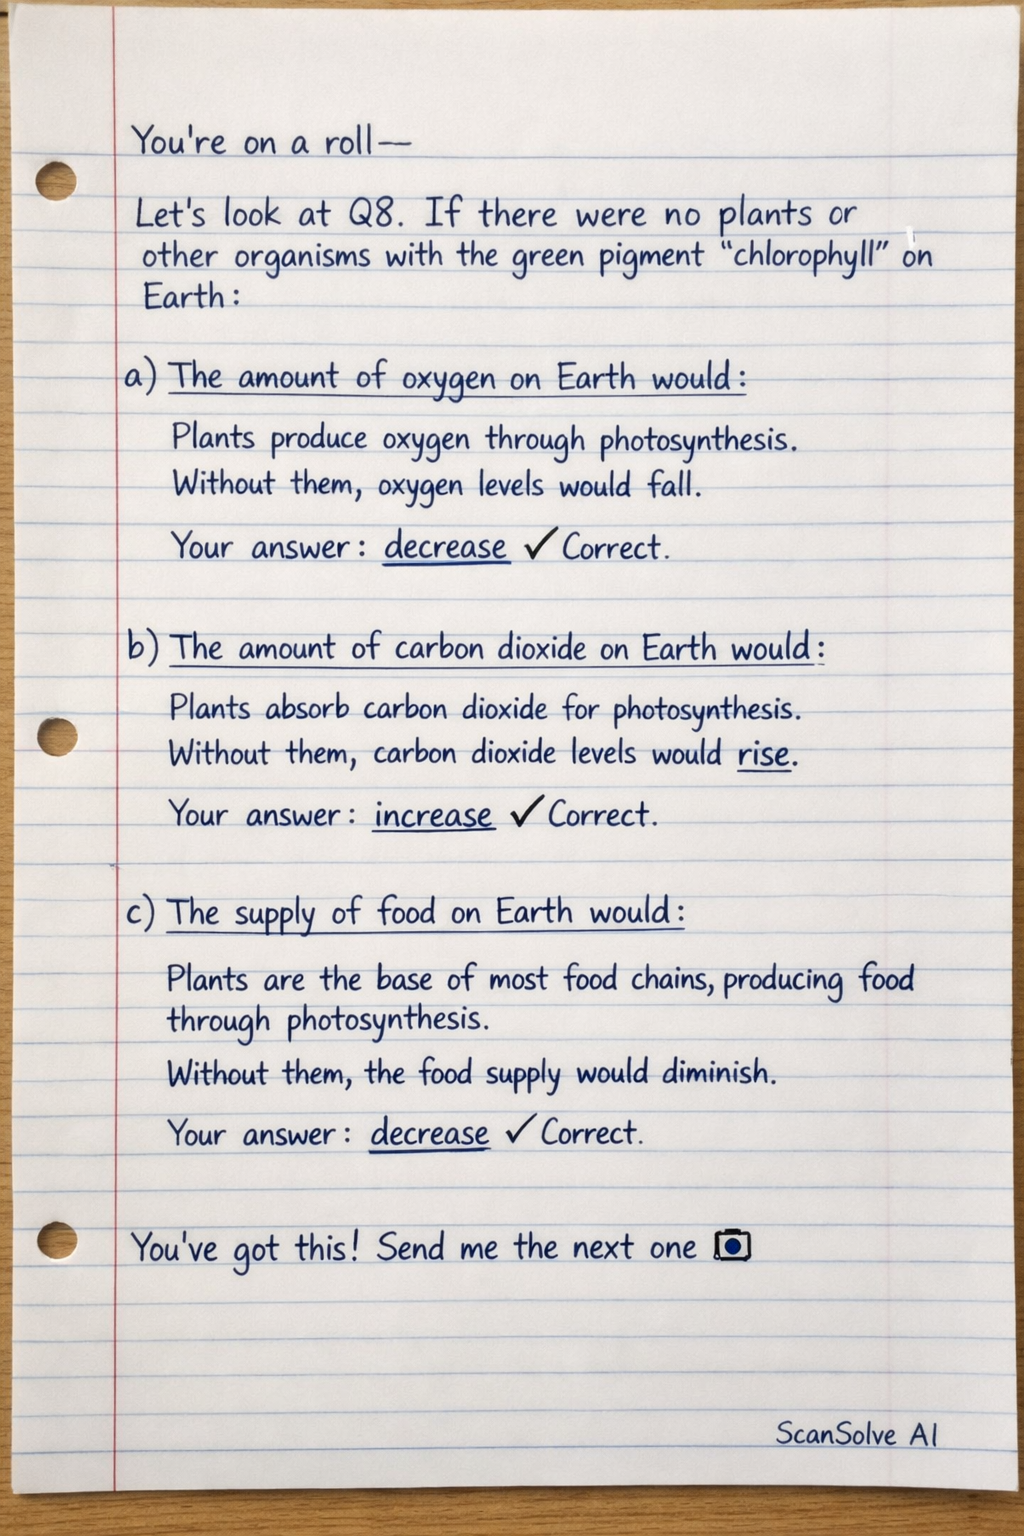 You're on a roll—
Let's look at Q8. If there were no plants or
other organisms with the green pigment “chlorophyll” on
Earth:
a) The amount of oxygen on Earth would:
Plants produce oxygen through photosynthesis.
Without them, oxygen levels would fall.
Your answer: decrease ✓ Correct.
b) The amount of carbon dioxide on Earth would:
Plants absorb carbon dioxide for photosynthesis.
Without them, carbon dioxide levels would rise.
Your answer: increase ✓ Correct.
c) The supply of food on Earth would:
Plants are the base of most food chains, producing food
through photosynthesis.
Without them, the food supply would diminish.
Your answer: decrease ✓ Correct.
You've got this! Send me the next one 📷
ScanSolve AI